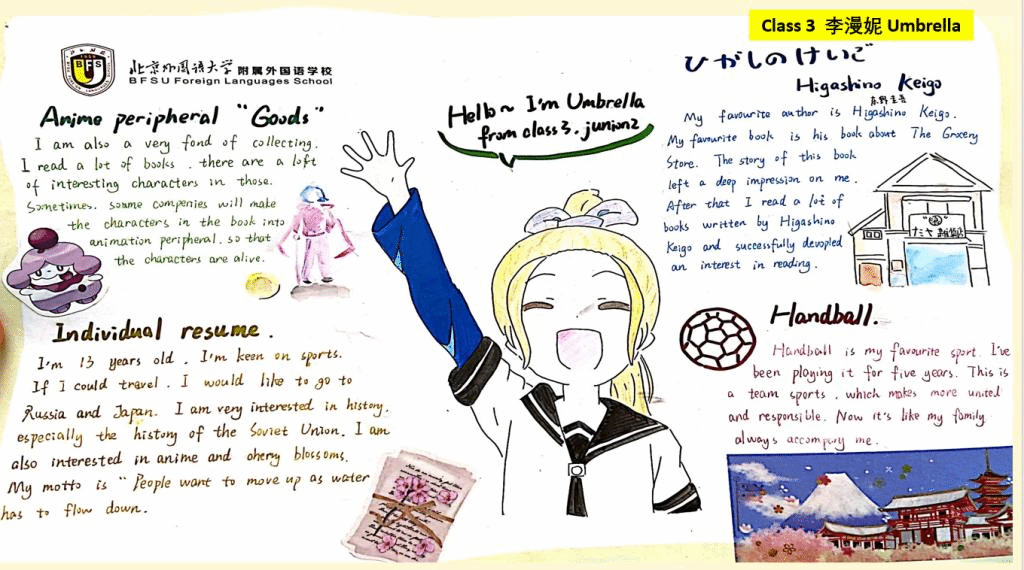 Class 3 李漫妮 Umbrella
北京外国语大学 附属外国语学校
BFSU Foreign Languages School
BFS
Hello~ I'm Umbrella
from class3. junion2
Anime peripheral "Goods"
I am also a very fond of collecting.
I read a lot of books . there are a loft
of interesting characters in those.
Sometimes. some companies will make
the characters in the book into
animation peripheral. so that
the characters are alive.
Individual resume.
I'm 13 years old . I'm keen on sports.
If I could travel . I would like to go to
Russia and Japan. I am very interested in history.
especially the history of the Soviet Union. I am
also interested in anime and cherry blossoms.
My motto is " People want to move up as water
has to flow down.
ひがしの けいご
Higashino Keigo
东野圭吾
My favourite author is Higashino Keigo.
My favourite book is his book about The Grocery
Store. The story of this book
left a deep impression on me.
After that I read a lot of
books written by Higashino
Keigo and successfully devopled
an interest in reading.
Handball.
Handball is my favourite sport. I've
been playing it for five years. This is
a team sports . which makes more united
and responsible. Now it's like my family
always accompany me.